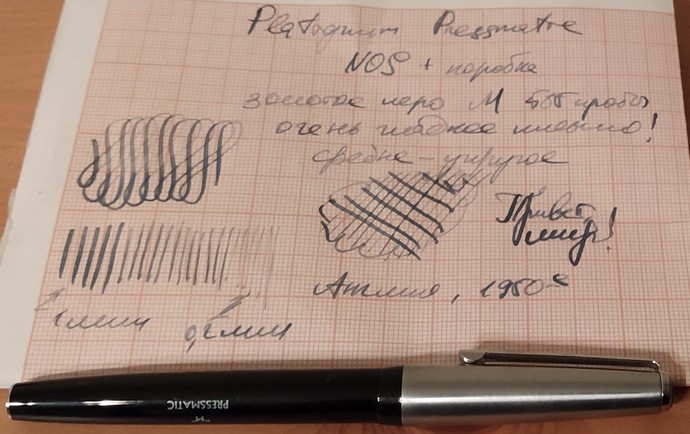 Platignum Pressmatic
NOS + коробка
золотое перо М 585 пробы
очень гладкое письмо!
средне-упругое
Привет,
мир!
Англия, 1950-е
1 мм
0,2 мм
PRESSMATIC